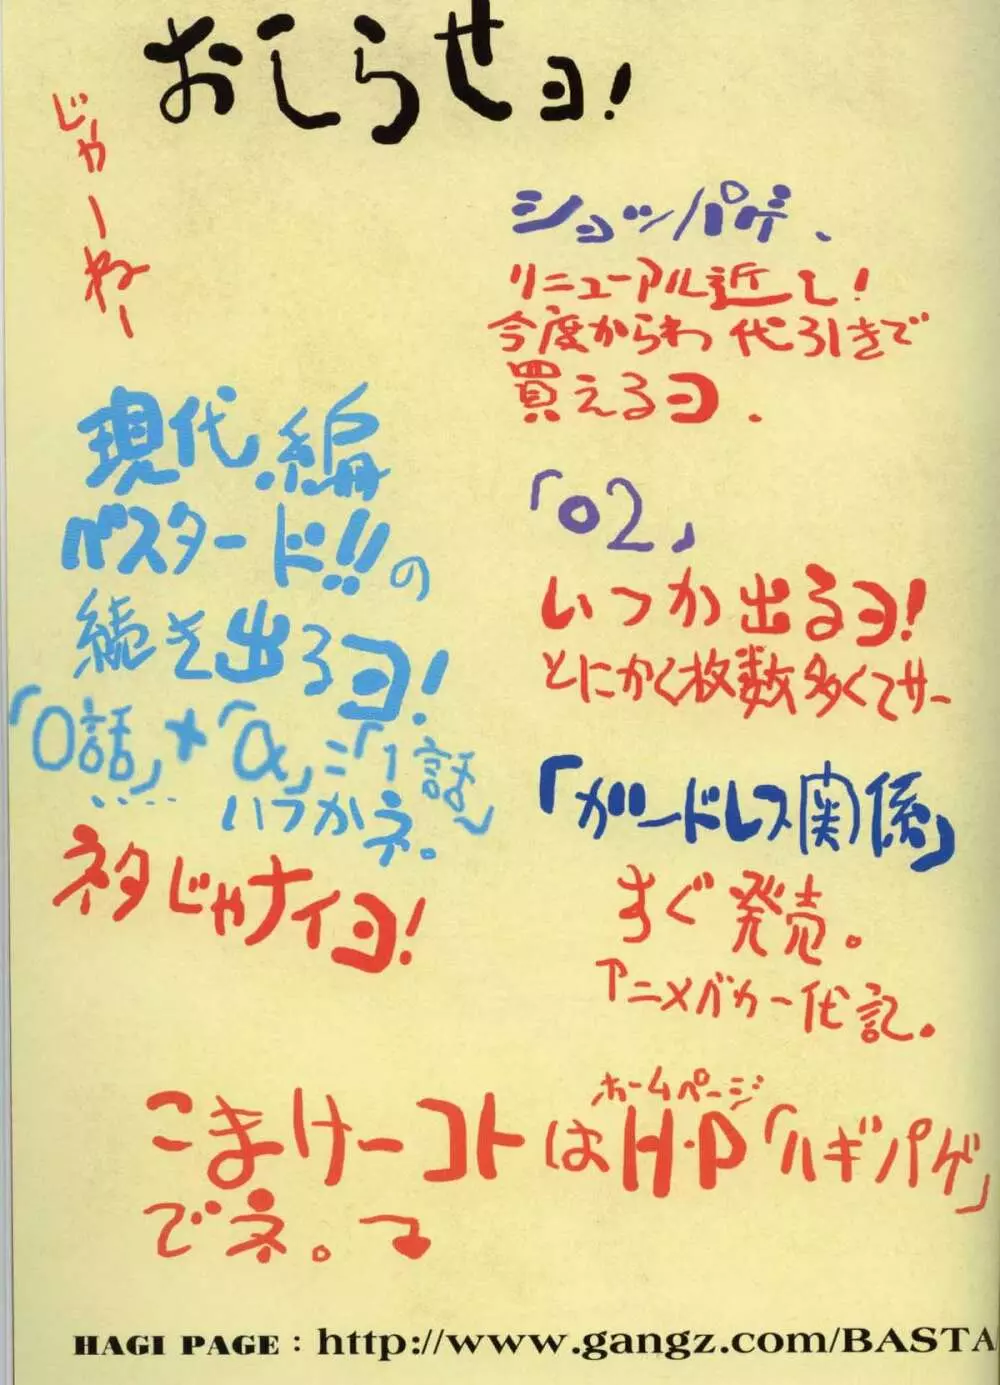 おしらせヨ!
ショッパゲ、
リニューアル近し!
今度からわ代引きで
買えるヨ、
「02」
いつか出るヨ!
とにかく枚数多くてサー
「ガードレス関係」
すぐ発売。
アニメバカ一代記。
じゃーねー
現代編
バスタード!!の
続き出るヨ!
「0話」+「α」=「1話」
……いつかネ。
ネタじゃナイヨ!
ホームページ
こまけーコトはH・P「ハギパゲ」
でネ。
HAGI PAGE : http://www.gangz.com/BASTA